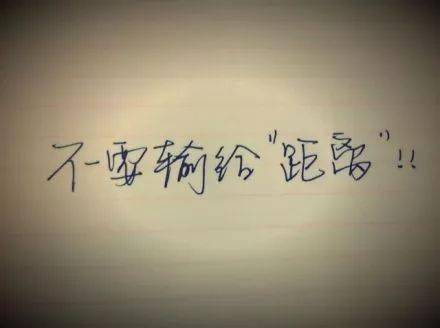 不要输给"距离"!!